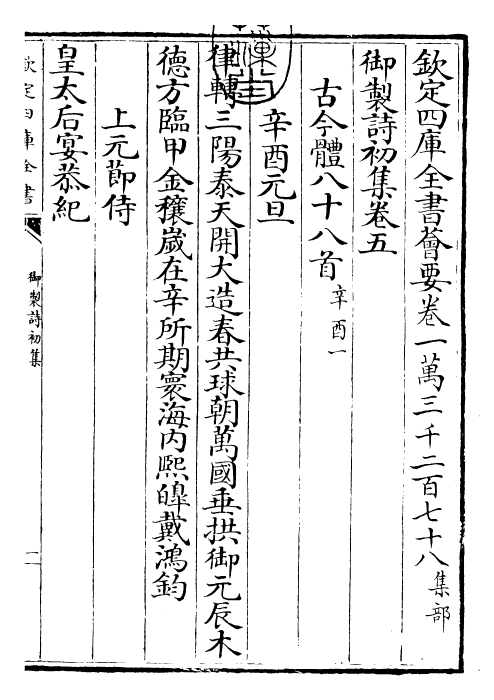 欽定四庫全書薈要卷一萬三千二百七十八集部
御製詩初集卷五
古今體八十八首辛酉一
辛酉元旦
律轉三陽泰天開大造春共球朝萬國垂拱御元辰木
德方臨甲金穰嵗在辛所期寰海内熙皥戴鴻鈞
上元節侍
皇太后宴恭紀
欽定四庫全書
御製詩初集
一